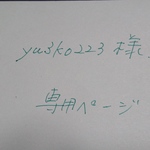 yu3ko223 様
専用ページ